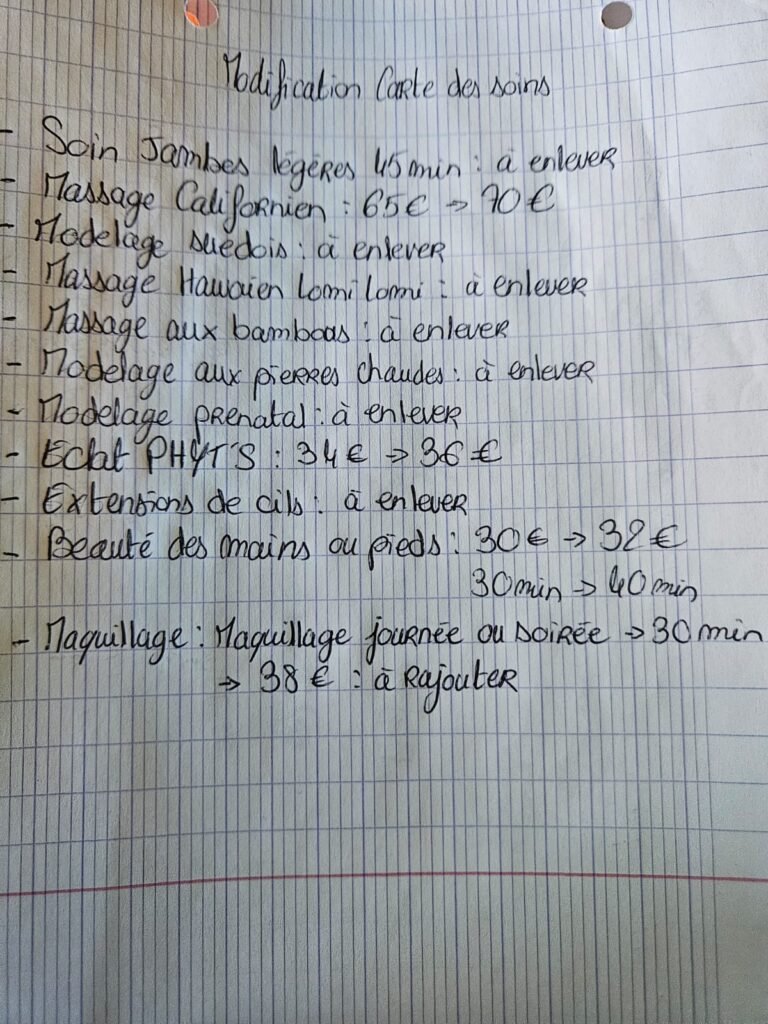 Modification Carte des soins
- Soin Jambes légères 45min : à enlever
- Massage Californien : 65€ → 70€
- Modelage suédois : à enlever
- Massage Hawaien Lomi Lomi : à enlever
- Massage aux bamboas : à enlever
- Modelage aux pierres chaudes : à enlever
- Modelage prénatal : à enlever
- Eclat PHYT'S : 34€ → 36€
- Extensions de cils : à enlever
- Beauté des mains ou pieds : 30€ → 32€
30min → 40min
- Maquillage : Maquillage journée ou soirée → 30min
→ 38€ : à rajouter